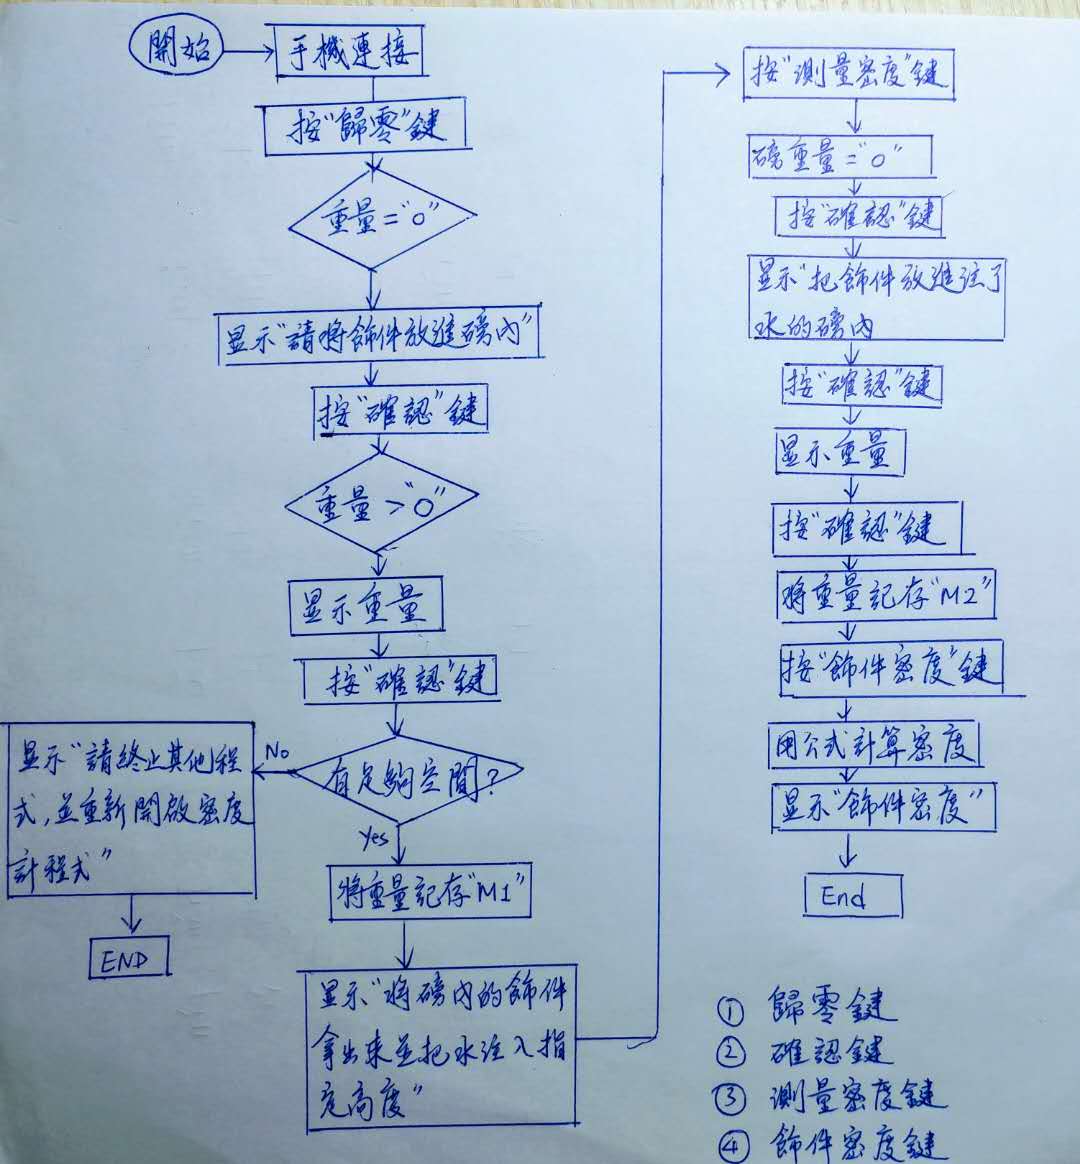 開始
手機連接
按"歸零"鍵
重量="0"
显示"請将飾件放進磅內"
按"確認"鍵
重量>"0"
显示重量
按"確認"鍵
有足夠空間?
No
显示"請終止其他程
式,並重新開啟密度
計程式"
END
Yes
將重量記存"M1"
显示"将磅內的飾件
拿出來並把水注入指
定高度"
按"測量密度"鍵
磅重量="0"
按"確認"鍵
显示"把飾件放進注了
水的磅內
按"確認"鍵
显示重量
按"確認"鍵
將重量記存"M2"
按"飾件密度"鍵
用公式計算密度
显示"飾件密度"
End
① 歸零鍵
② 確認鍵
③ 測量密度鍵
④ 飾件密度鍵